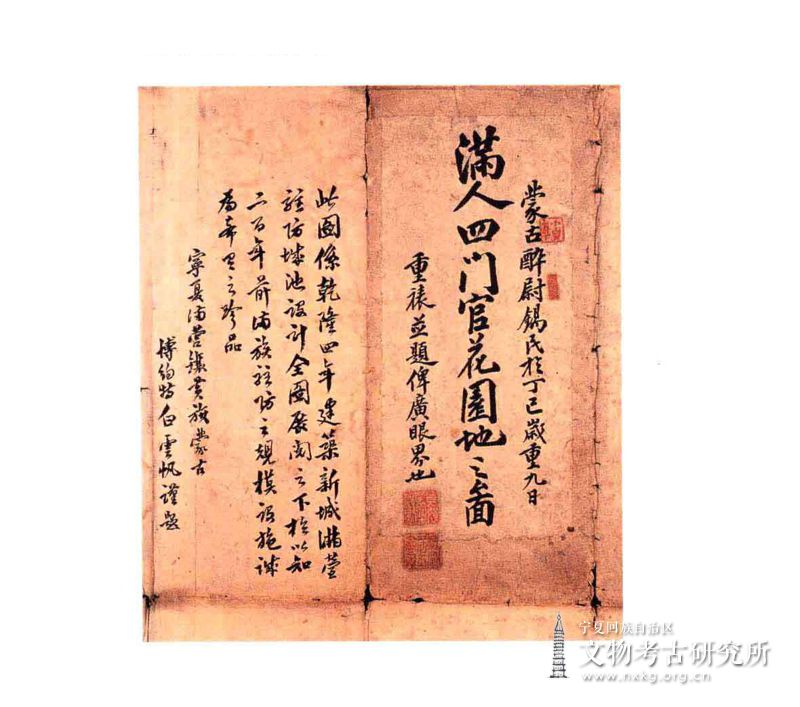 蒙古醉尉錫民於丁巳歲重九日
滿人四門官花園地之畵面
重裱並題俾廣眼界也
此圖係乾隆四年建築新城滿營
駐防城池設計全圖展閱之下極以知
二百年前滿族駐防之規模設施誠
為希里之珍品
寧夏滿營鑲黃旗蒙古
博約特白雲帆謹题
宁夏回族自治区
文物考古研究所
www.nxkg.org.cn